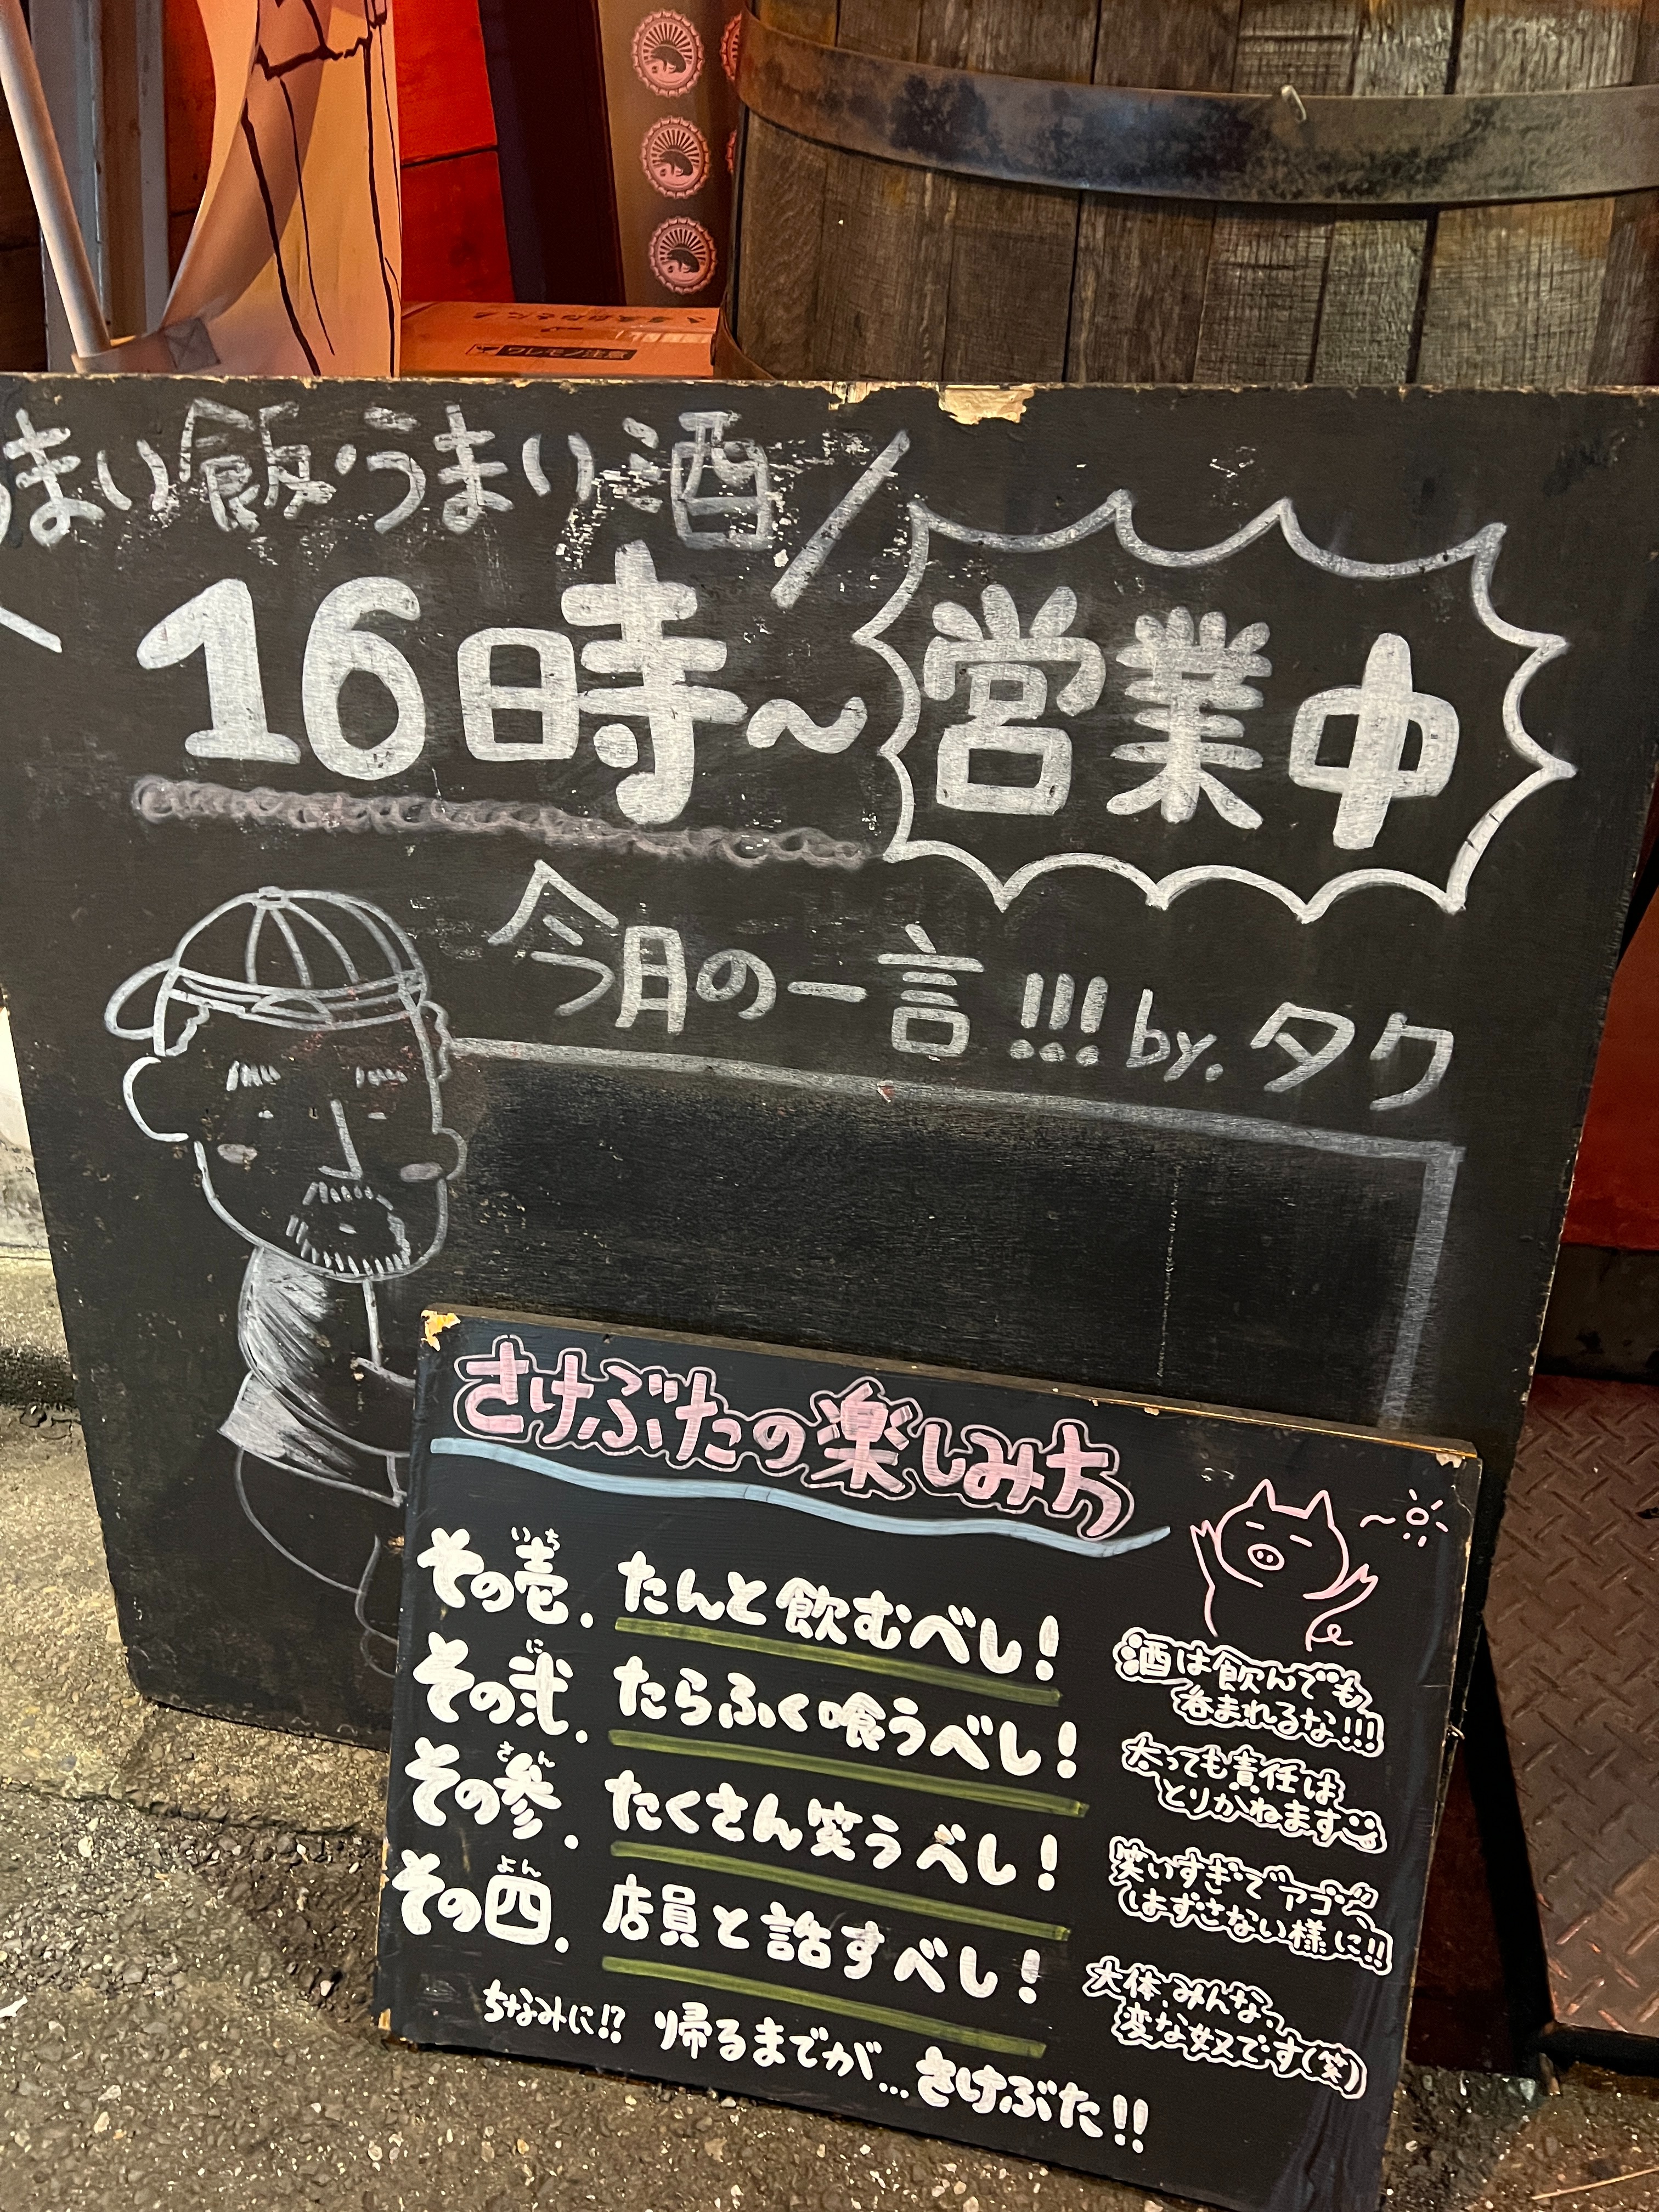 うまい飯・うまい酒
16時～営業中
今月の一言!!! by.タク
さけぶたの楽しみ方
いち
その壱. たんと飲むべし!
酒は飲んでも
呑まれるな!!!
に
その弐. たらふく喰うべし!
太っても責任は
とりかねます
さん
その参. たくさん笑うべし!
笑いすぎてアゴ
はずさない様に!!
よん
その四. 店員と話すべし!
大体、みんな、
変な奴です(笑)
ちなみに!? 帰るまでが...さけぶた!!